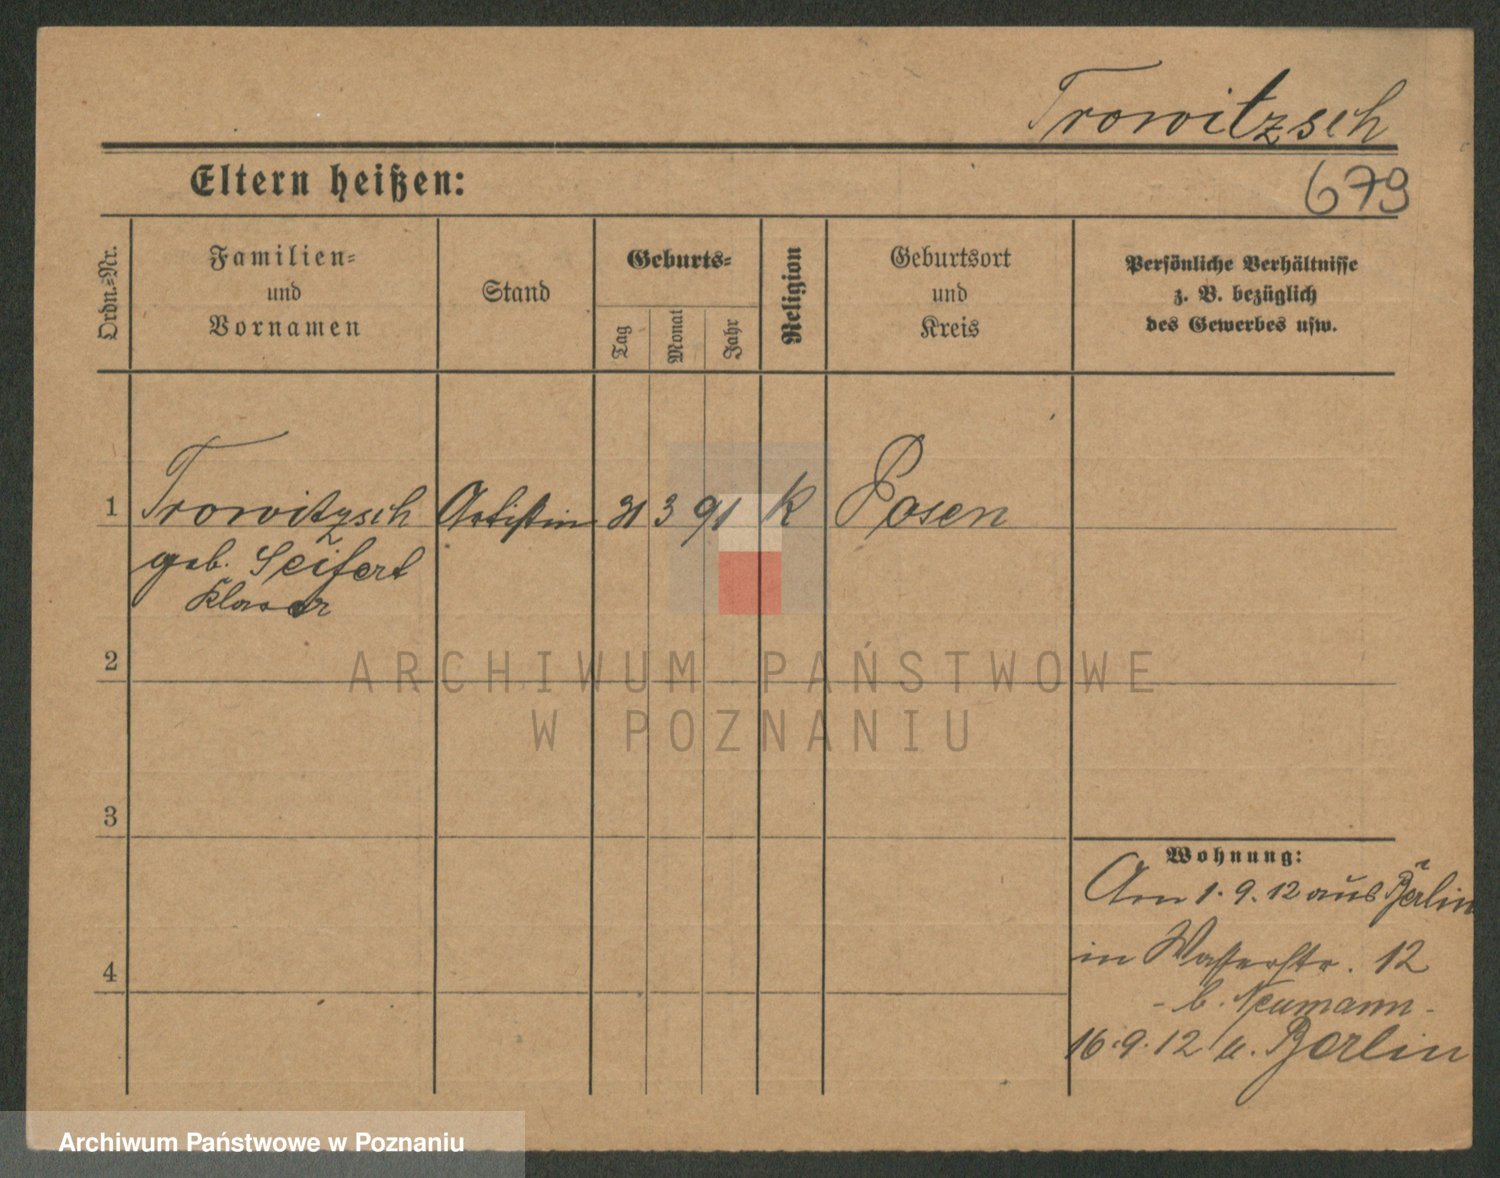 Trowitzsch
Eltern heißen:
679
Ordn.-Nr.
Familien-
und
Vornamen
Stand
Geburts-
Tag
Monat
Jahr
Religion
Geburtsort
und
Kreis
Persönliche Verhältnisse
z. B. bezüglich
des Gewerbes usw.
1 Trowitzsch Artistin 31 3 91 K Posen
geb. Seifert
2
3
4
Wohnung:
Am 1.9.12 aus Berlin
in Wasserstr. 12
- b. Neumann -
16.9.12 n. Berlin
ARCHIWUM PAŃSTWOWE
W POZNANIU
Archiwum Państwowe w Poznaniu